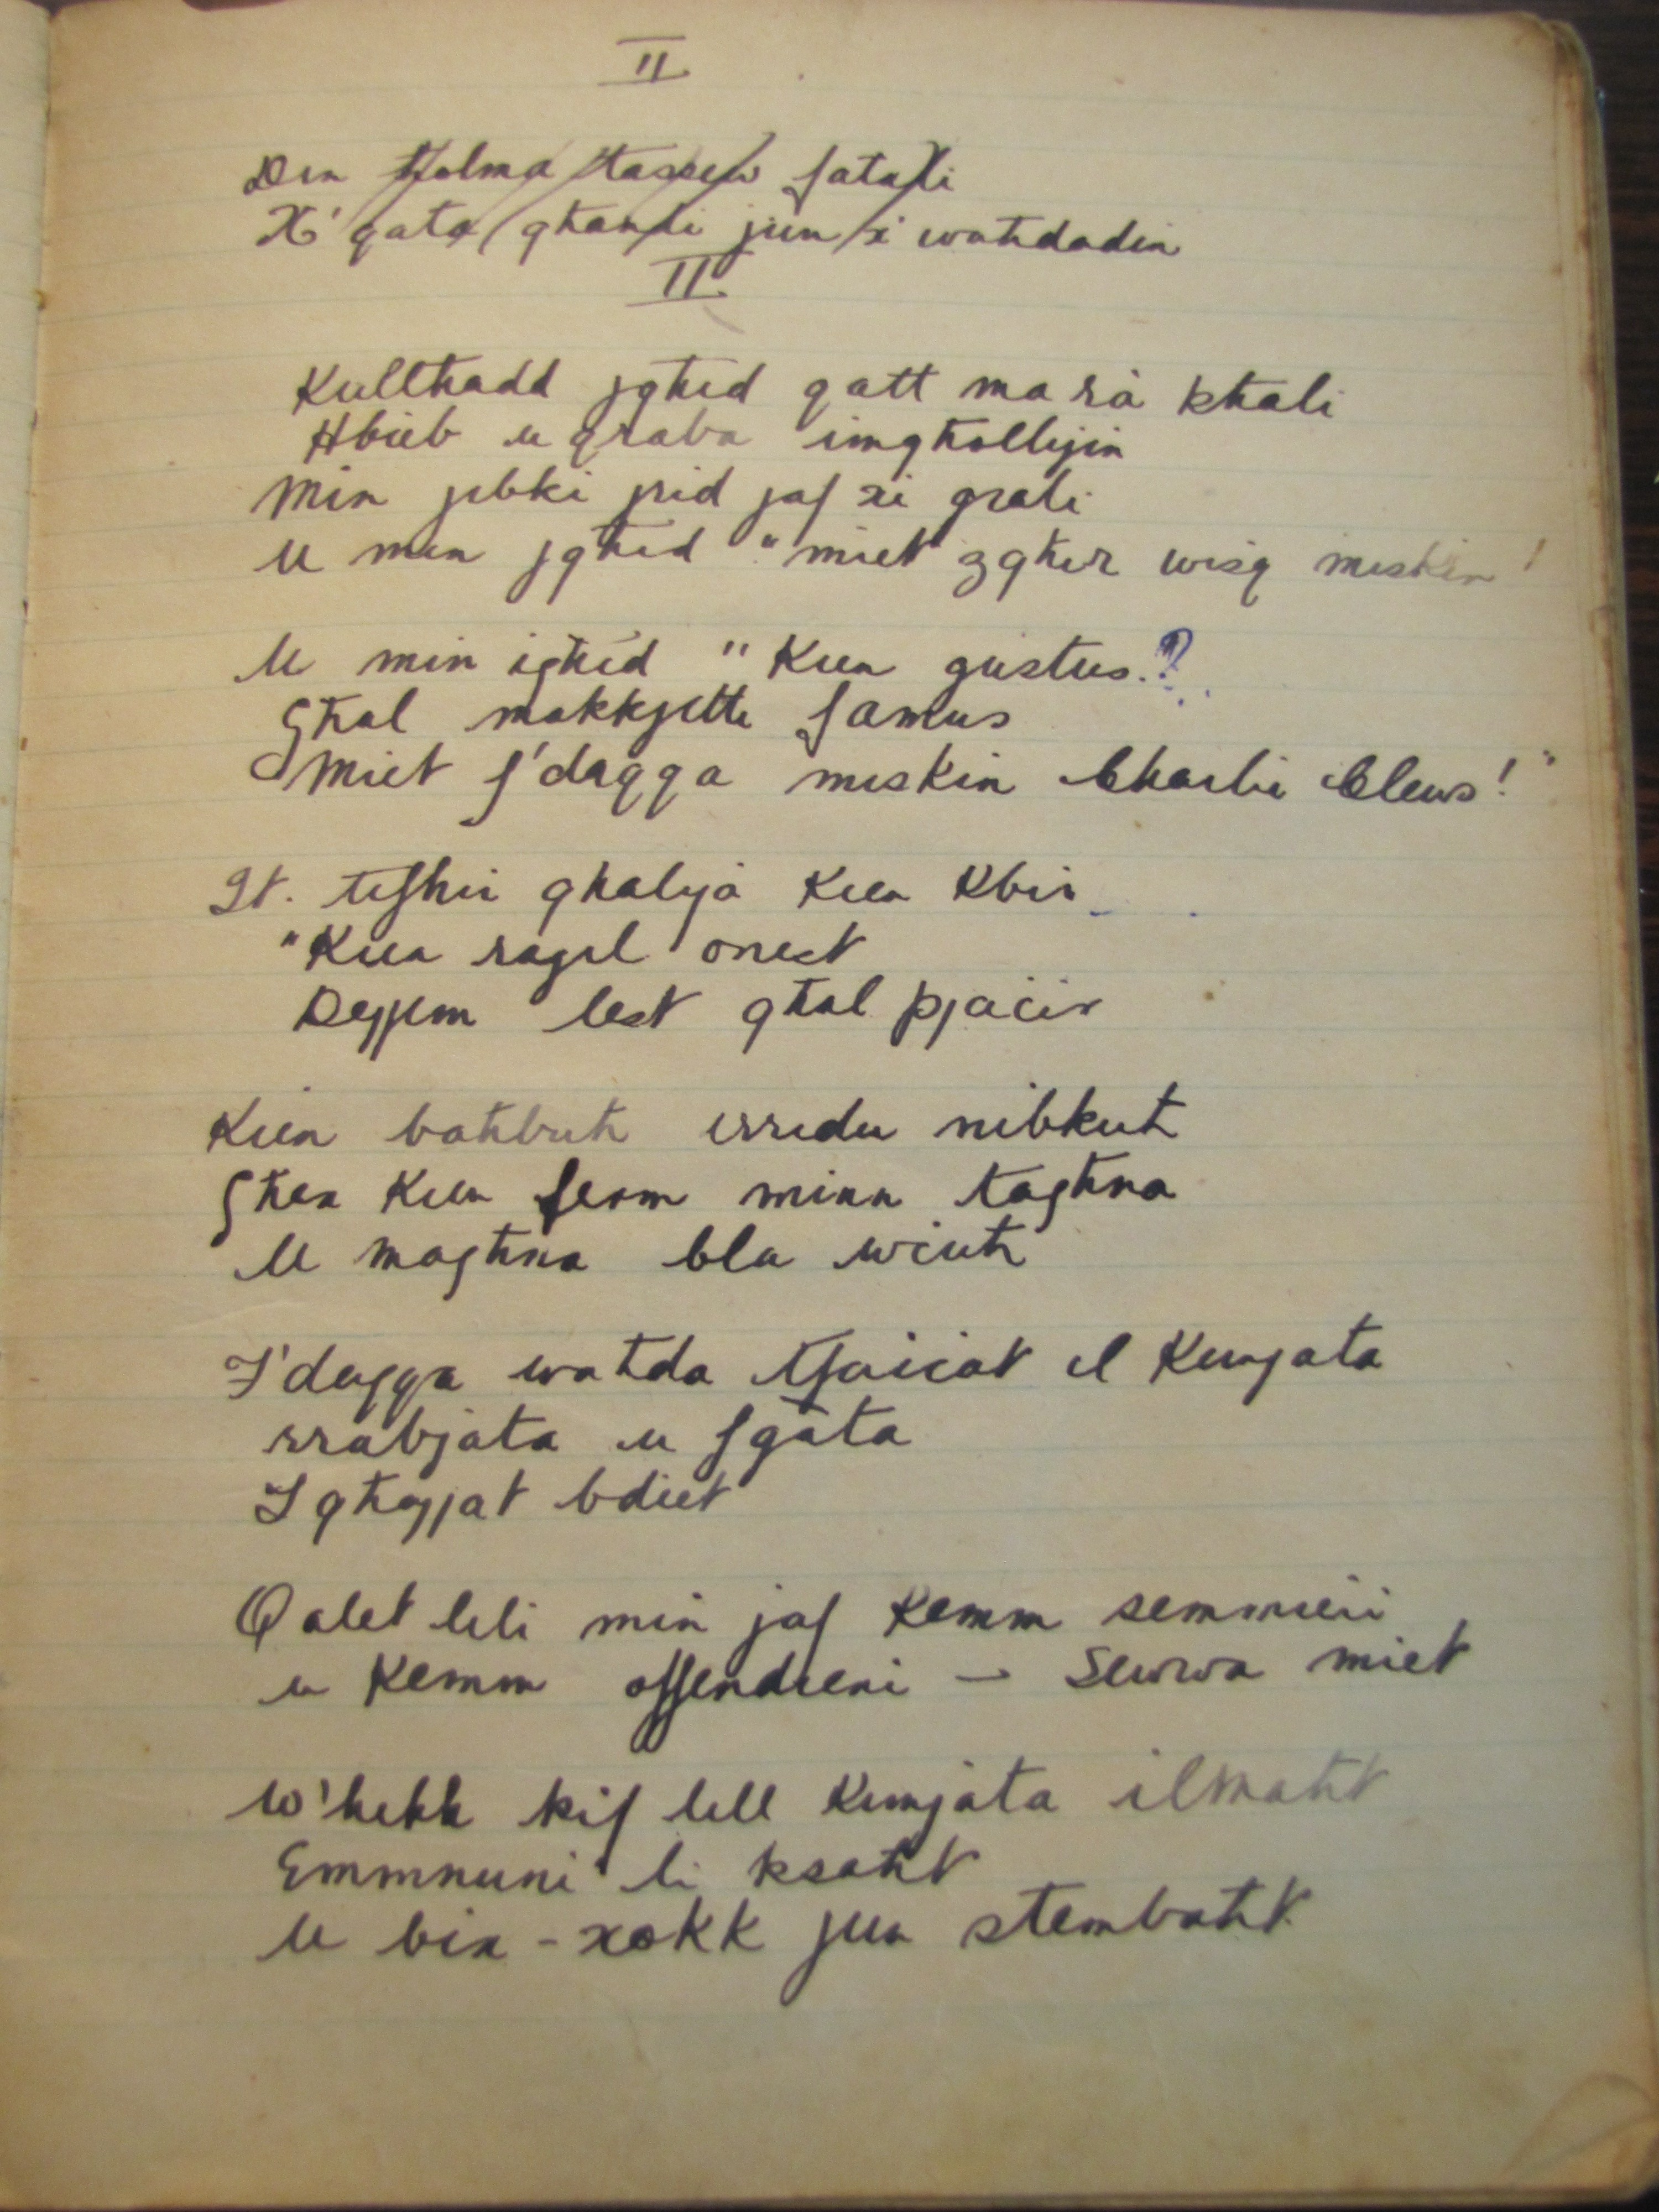 II
Din Holma tassew fatali
X'qata' għandi jien xi waħdadin
II
Kullħadd jgħid qatt ma rà bħali
Ħbieb u qraba imqħollijin
Min jibki jrid jaf xi ġrali
U min jgħid "miet żgħir wisq miskin!
U min igħid "Kien gustus.?
Għal makkjetti famus
Miet f'daqqa miskin Charlie Clews!"
It. tifħir għalija kien kbir
"Kien raġel onest
Dejjem lest għal pjaċir
Kien baħbuħ irridu nibkuħ
Għex kien ferm minn tagħna
U magħna bla wċuħ
F'daqqa waħda tfaċċat il Kunjata
rrabjata u fgata
Igħajjat bdiet
Qalet lili min jaf kemm semmieni
u kemm offendieni – Sewwa miet
W'hekk kif lill Kunjata ilmaħt
Emmnuni li ksaħt
U bix-xokk jien stembaħt.